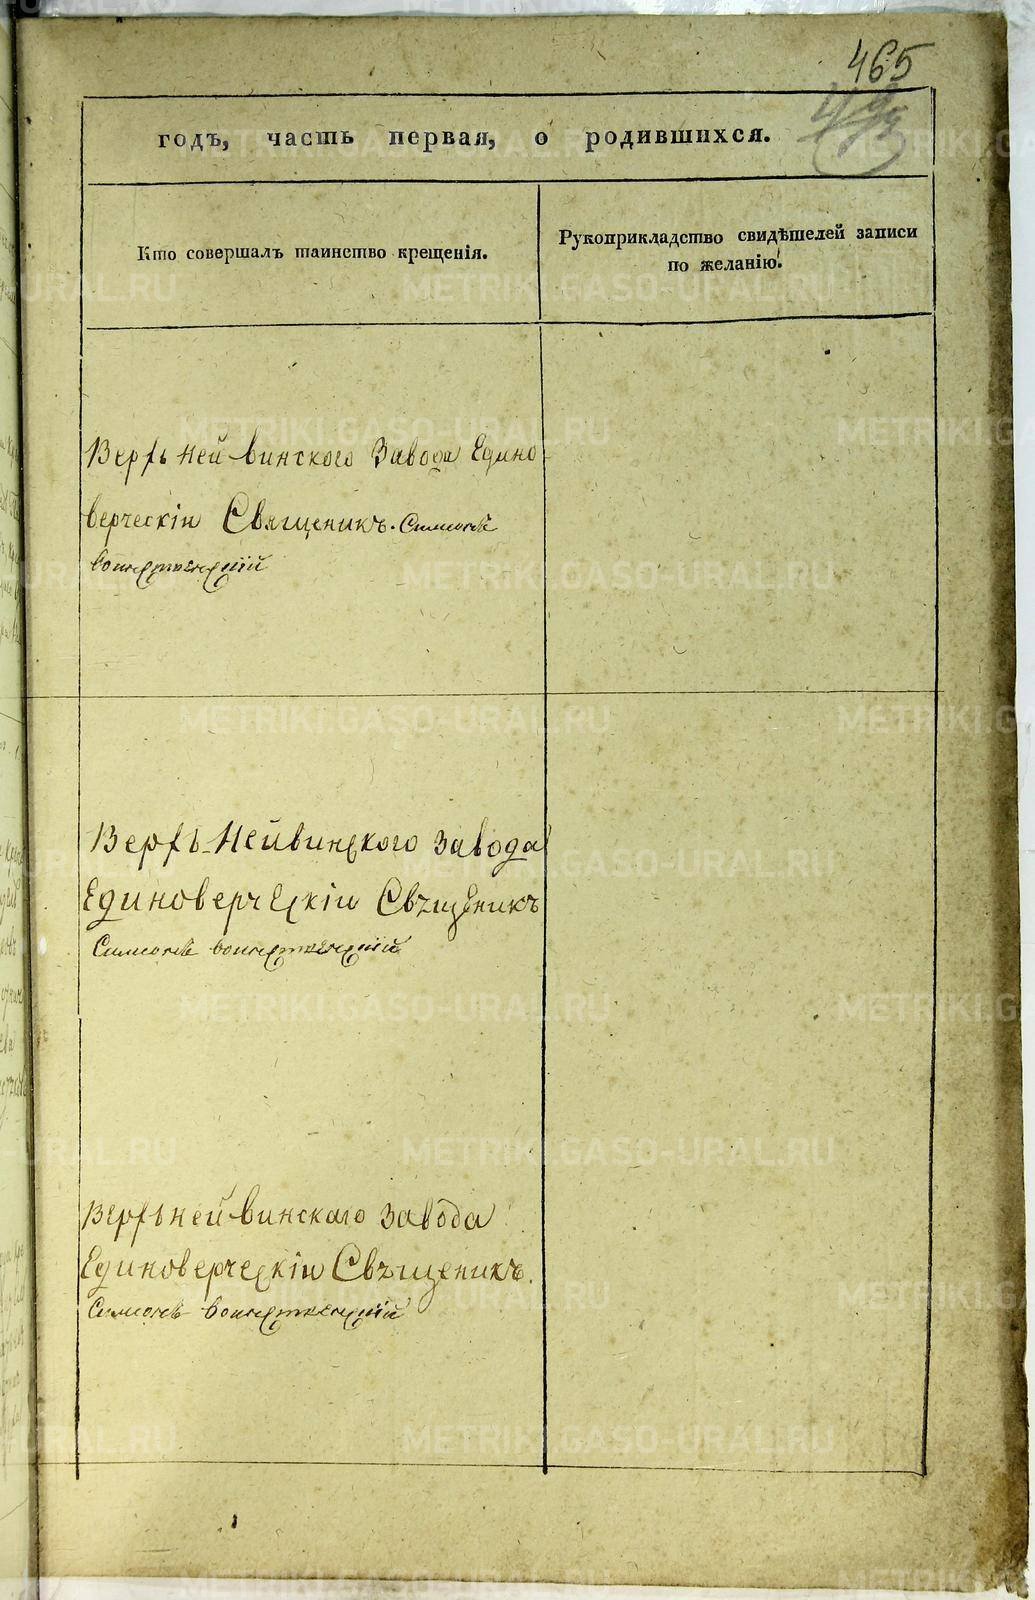 465
годъ, часть первая, о родившихся.
Кто совершалъ таинство крещенія.
Рукоприкладство свидѣтелей записи
по желанію.
Верхъ Ней винского Завода Едино
верческіи Священикъ. Симеонъ
Верхъ-Нейвинского завода
Единоверческіи Свѣщеникъ
Симеонъ
Верхъ ней винскаго завода
Единоверческіи Свѣщеникъ.
Симеонъ
METRIKI.GASO-URAL.RU